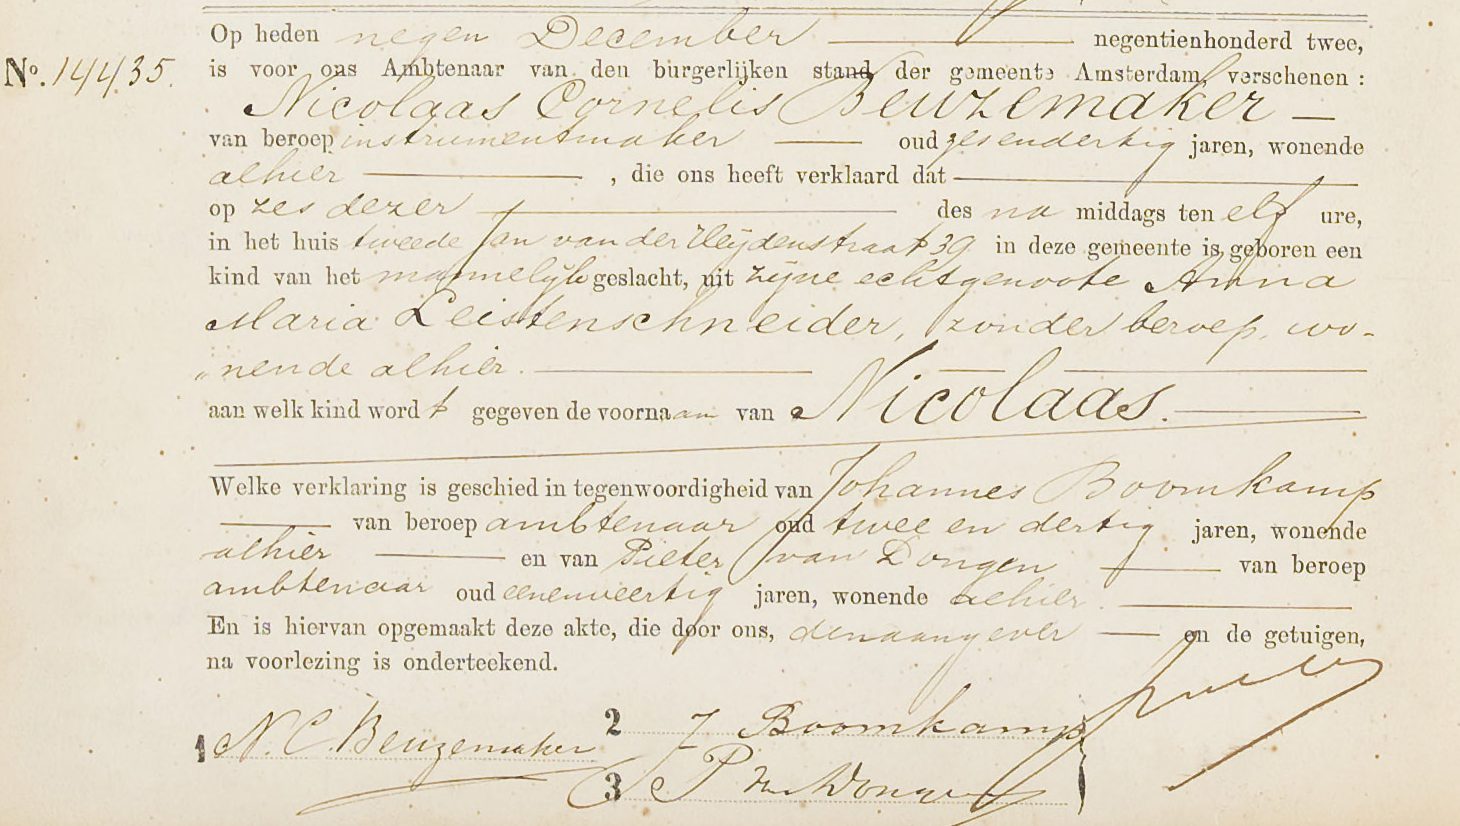 Op heden negen December negentienhonderd twee,
No. 14435. is voor ons Ambtenaar van den burgerlijken stand der gemeente Amsterdam, verschenen :
Nicolaas Cornelis Beuzemaker
van beroep instrumentmaker oud zesendertig jaren, wonende
alhier , die ons heeft verklaard dat
op zes dezer des na middags ten elf ure,
in het huis tweede Jan van der Heijdenstraat 39 in deze gemeente is geboren een
kind van het mannelijk geslacht, uit zijne echtgenoote Anna
Maria Leistenschneider, zonder beroep, wo-
nende alhier.
aan welk kind wordt gegeven de voornaam van Nicolaas.
Welke verklaring is geschied in tegenwoordigheid van Johannes Boomkamp
van beroep ambtenaar oud twee en dertig jaren, wonende
alhier en van Pieter van Dongen van beroep
ambtenaar oud eenenveertig jaren, wonende alhier.
En is hiervan opgemaakt deze akte, die door ons, den aangever en de getuigen,
na voorlezing is onderteekend.
1 N. C. Beuzemaker 2 J Boomkamp
3 P v Dongen